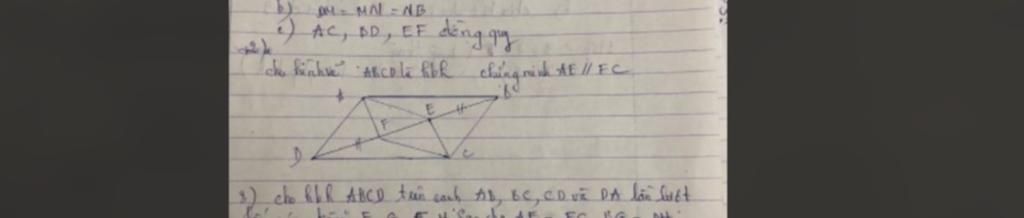 b) DM = MN = NB
c) AC, BD, EF đồng quy
cho hình vẽ ABCD là hbh chứng minh AE // FC
A B
E
F
D C
3) cho hbh ABCD trên cạnh AB, BC, CD và DA lần lượt